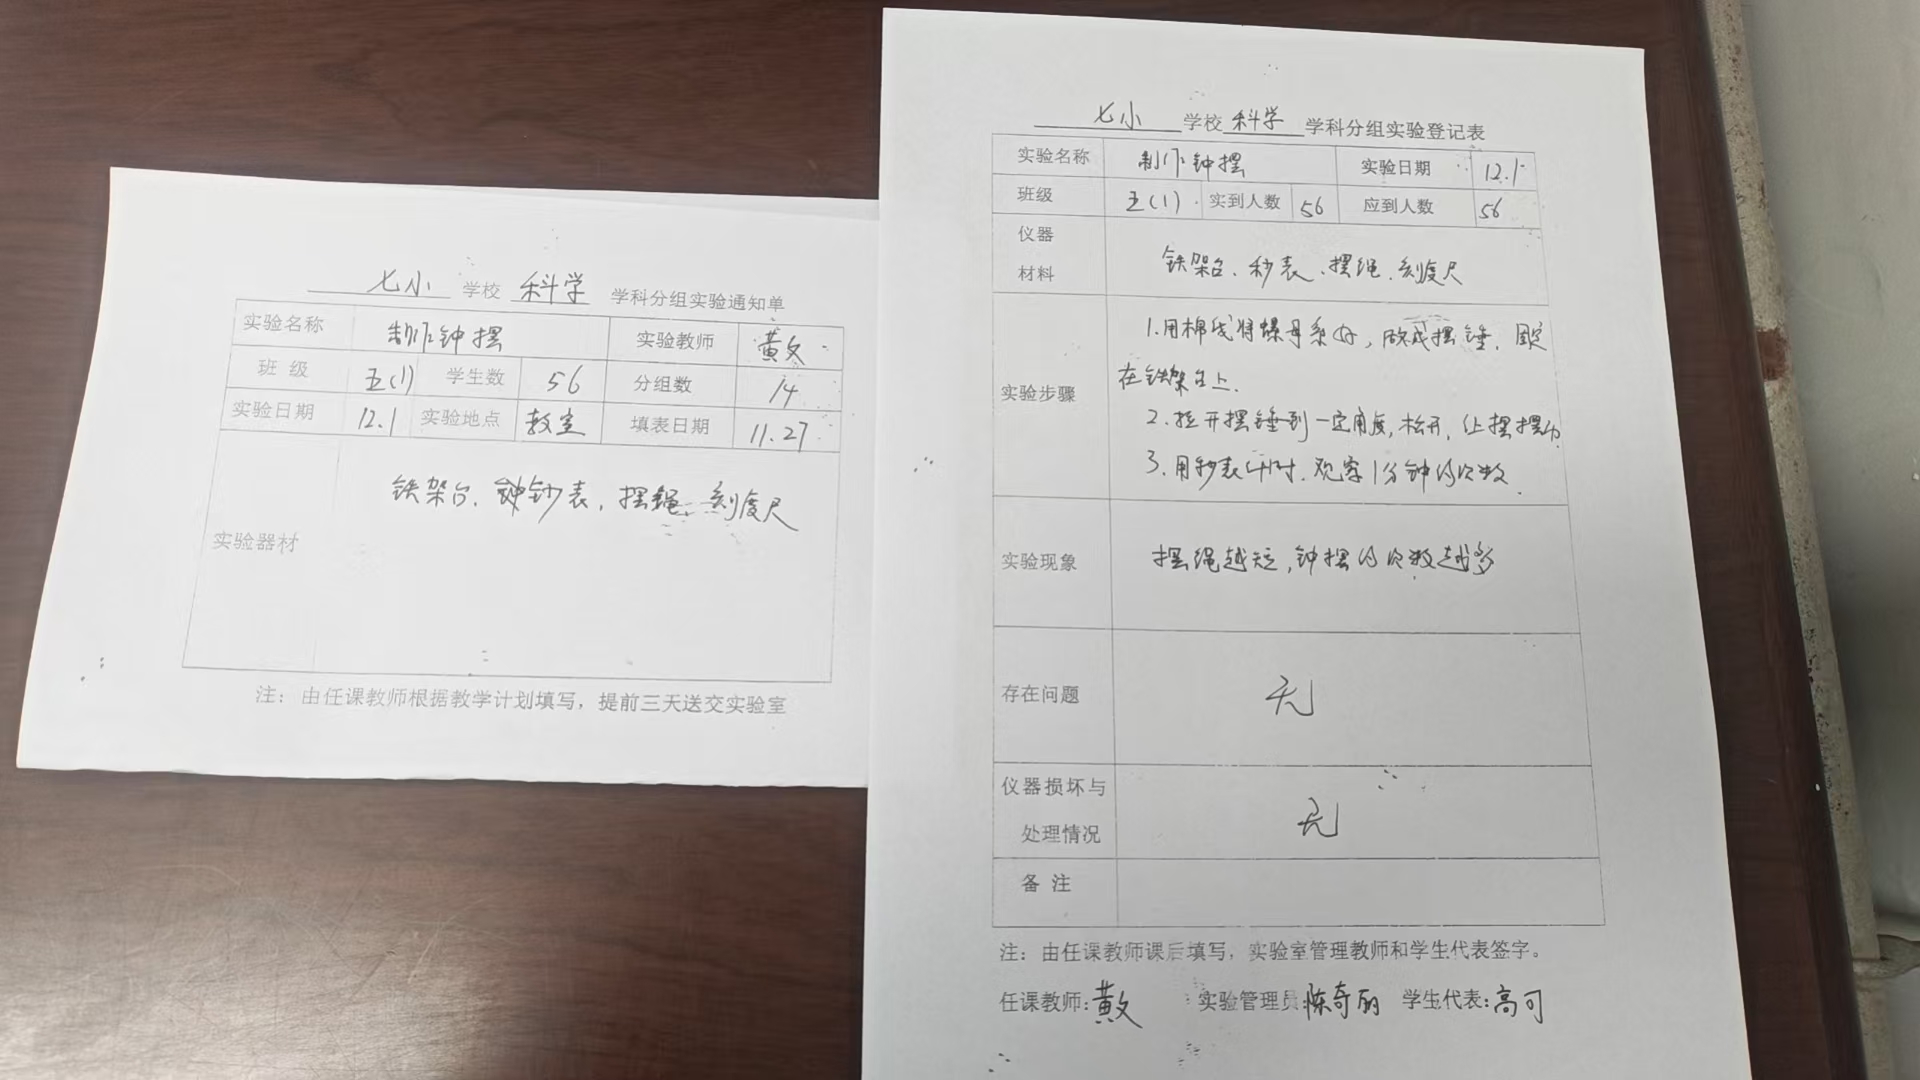 七小 学校 科学 学科分组实验通知单
实验名称 制作钟摆 实验教师 黄文
班级 五(1) 学生数 56 分组数 14
实验日期 12.1 实验地点 教室 填表日期 11.27
实验器材 铁架台、钞表、摆绳、刻度尺
注：由任课教师根据教学计划填写，提前三天送交实验室
七小 学校 科学 学科分组实验登记表
实验名称 制作钟摆 实验日期 12.1
班级 五(1) 实到人数 56 应到人数 56
仪器
材料
铁架台、秒表、摆绳、刻度尺
实验步骤
1.用棉线将螺母系好，做成摆锤，固定
在铁架台上.
2.拉开摆锤到一定角度,松开,让摆摆动
3.用秒表计时.观察1分钟的次数.
实验现象 摆绳越短,钟摆的次数越多
存在问题 无
仪器损坏与
处理情况
无
备注
注：由任课教师课后填写，实验室管理教师和学生代表签字。
任课教师:黄文 实验管理员:陈奇丽 学生代表:高可